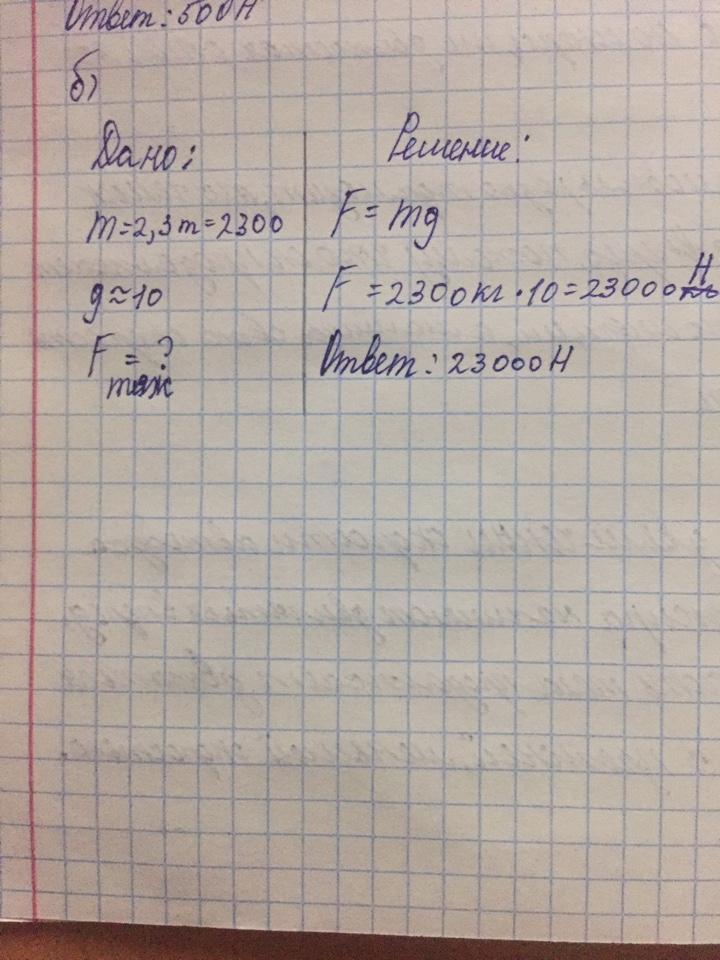 Ответ: 500 Н
б)
Дано:
m=2,3т=2300
g≈10
F = ?
тяж
Решение:
F = mg
F = 2300кг·10=23000 Н
Ответ: 23000 Н